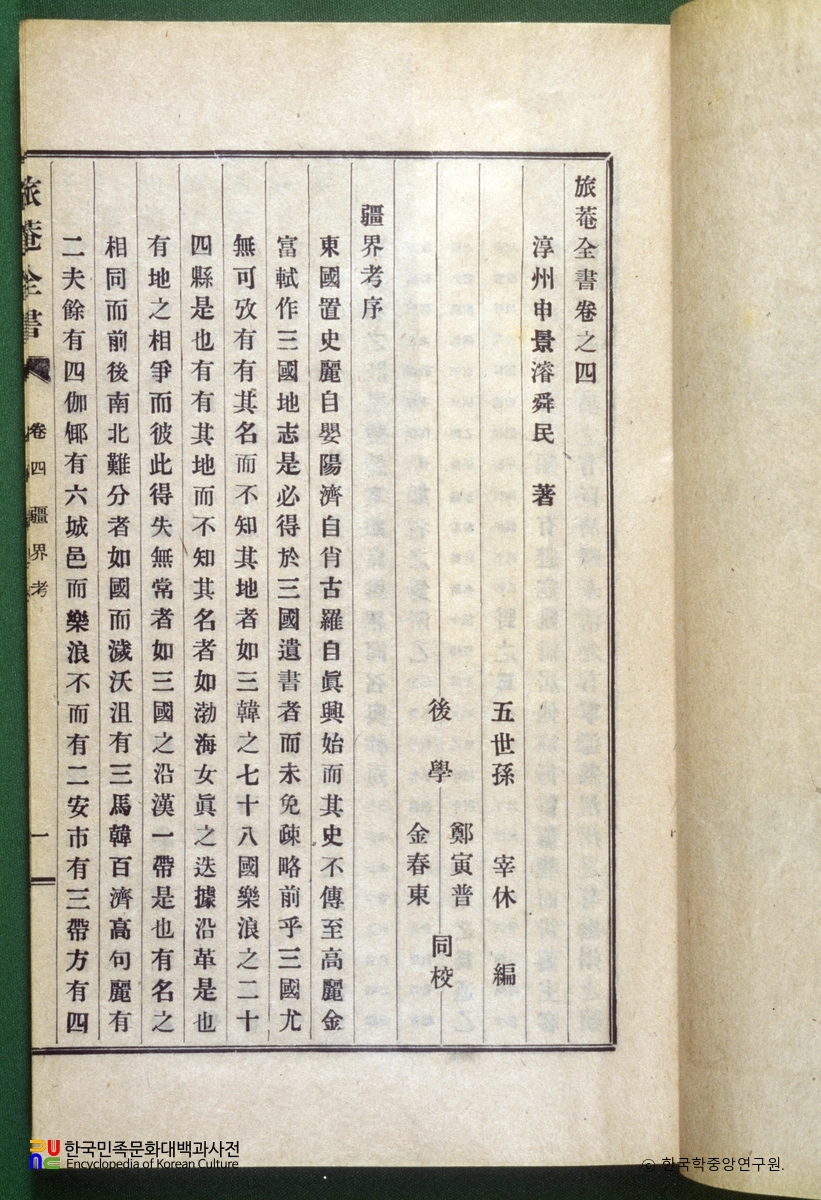 旅菴全書卷之四
淳州申景濬舜民 著
五世孫 宰休 編
後學 鄭寅普 金春東 同校
疆界考序
東國置史麗自嬰陽濟自肖古羅自眞興始而其史不傳至高麗金
富軾作三國地志是必得於三國遺書者而未免疎略前乎三國尤
無可攷有有其名而不知其地者如三韓之七十八國樂浪之二十
四縣是也有有其地而不知其名者如渤海女眞之迭據沿革是也
有地之相爭而彼此得失無常者如三國之沿漢一帶是也有名之
相同而前後南北難分者如國而濊沃沮有三馬韓百濟高句麗有
二夫餘有四伽倻有六城邑而樂浪不而有二安市有三帶方有四
旅菴全書 卷四 疆界考 一
한국민족문화대백과사전
Encyclopedia of Korean Culture
ⓒ 한국학중앙연구원.